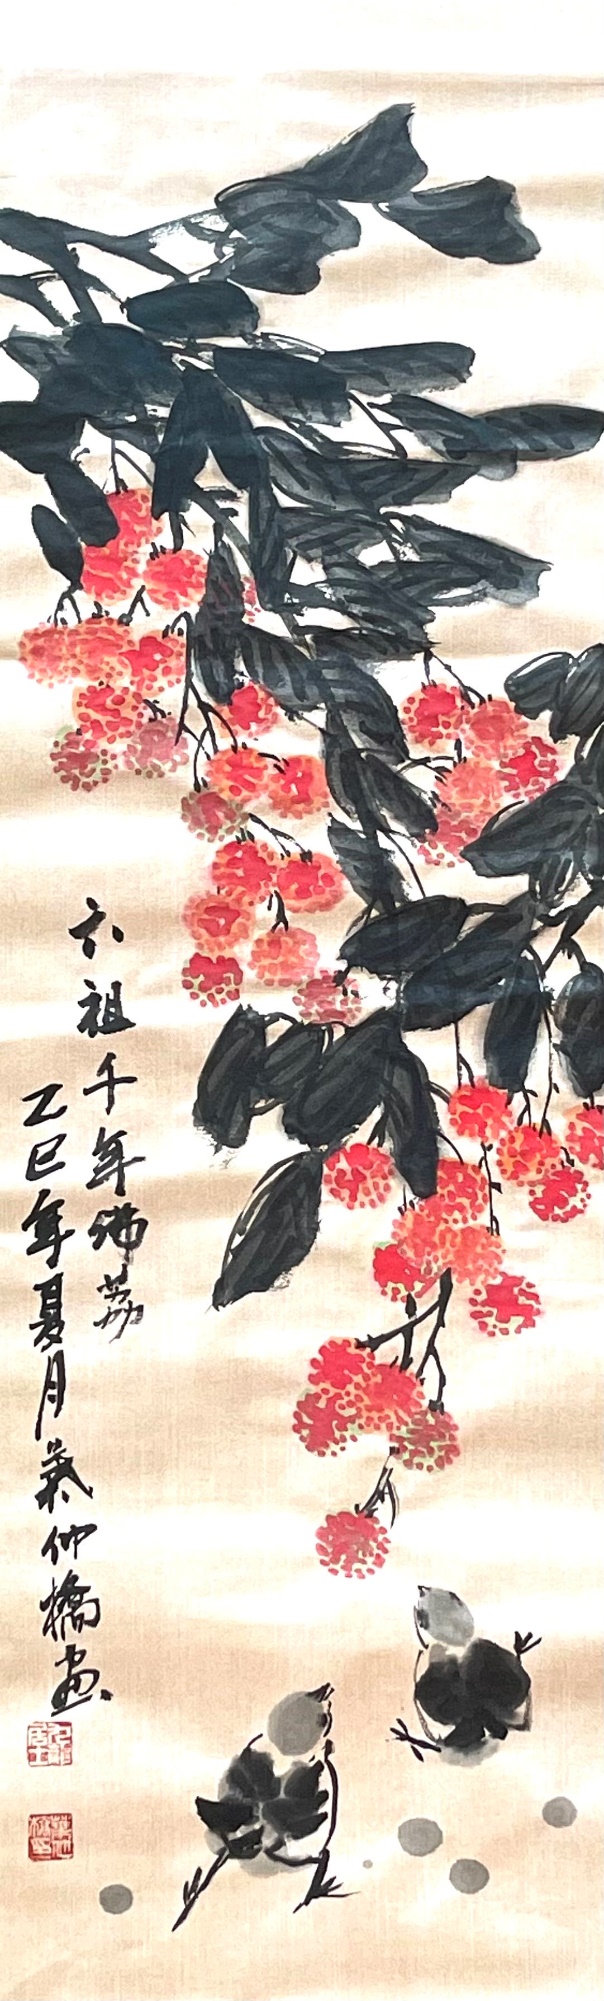 六祖千年佛荔
乙巳年夏月葉仲橋畫